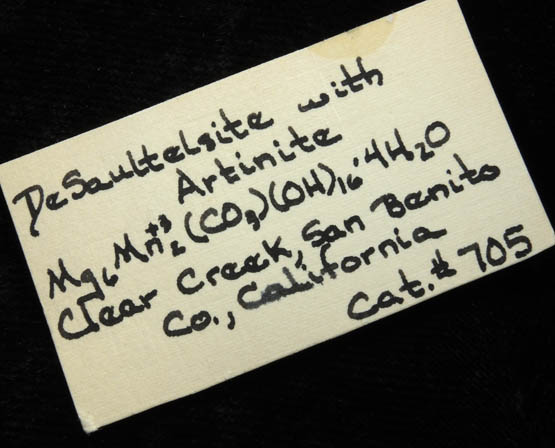 DeSaultelsite with
Artinite
Mg6Mn+3 2(CO3)(OH)16·4H2O
Clear Creek, San Benito
Co., California
Cat.# 705